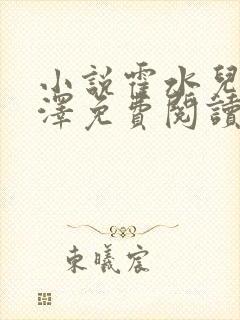 小說霍水兒
澤免費閱讀
東曦宸